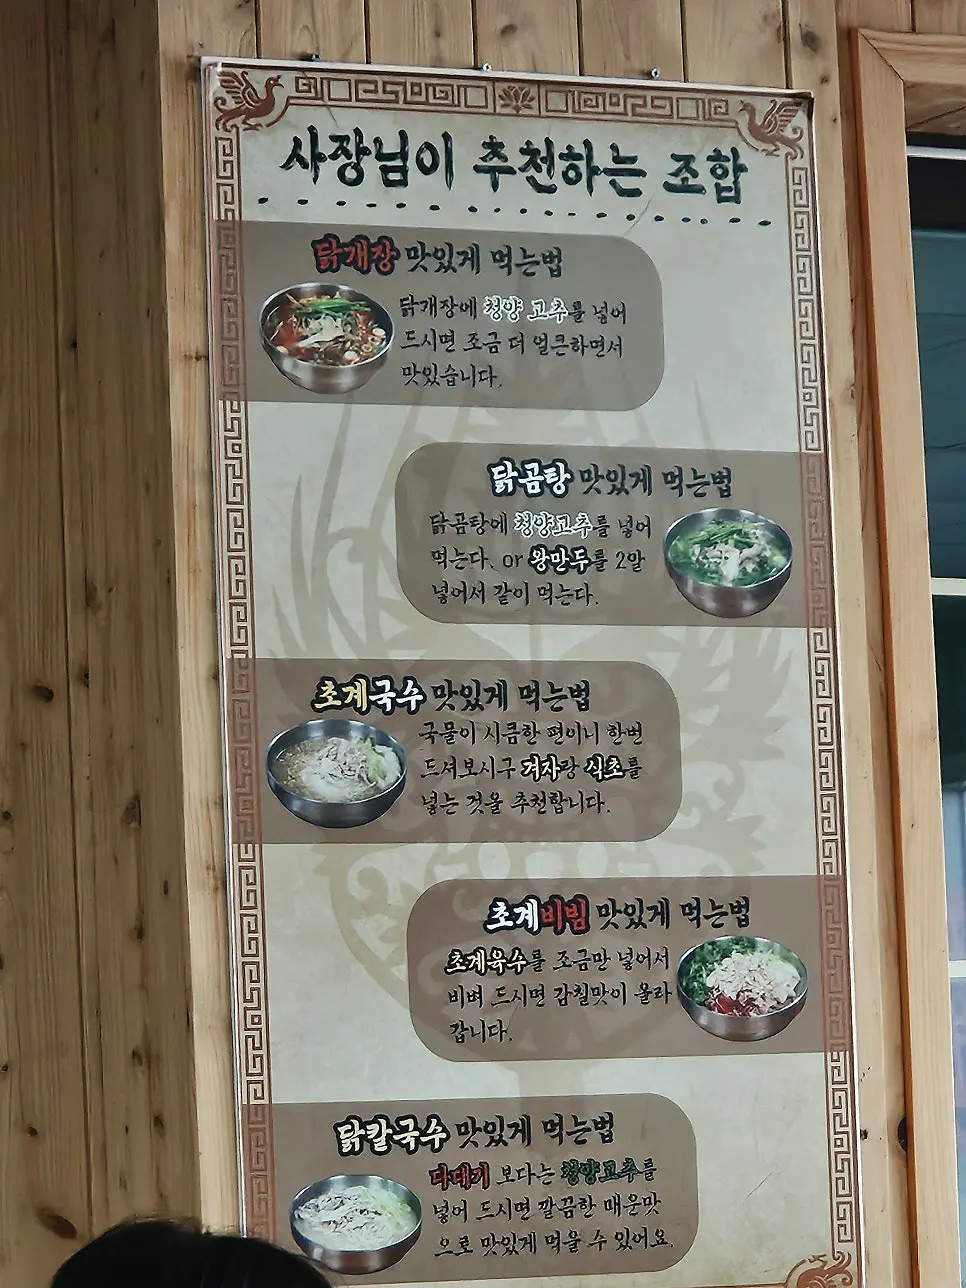 사장님이 추천하는 조합
닭개장 맛있게 먹는법
닭개장에 청양 고추를 넣어
드시면 조금 더 얼큰하면서
맛있습니다.
닭곰탕 맛있게 먹는법
닭곰탕에 청양고추를 넣어
먹는다. or 왕만두를 2알
넣어서 같이 먹는다.
초계국수 맛있게 먹는법
국물이 시큼한 편이니 한번
드셔보시구 겨자랑 식초를
넣는 것을 추천합니다.
초계비빔 맛있게 먹는법
초계육수를 조금만 넣어서
비벼 드시면 감칠맛이 올라
갑니다.
닭칼국수 맛있게 먹는법
다대기 보다는 청양고추를
넣어 드시면 깔끔한 매운맛
으로 맛있게 먹을 수 있어요.